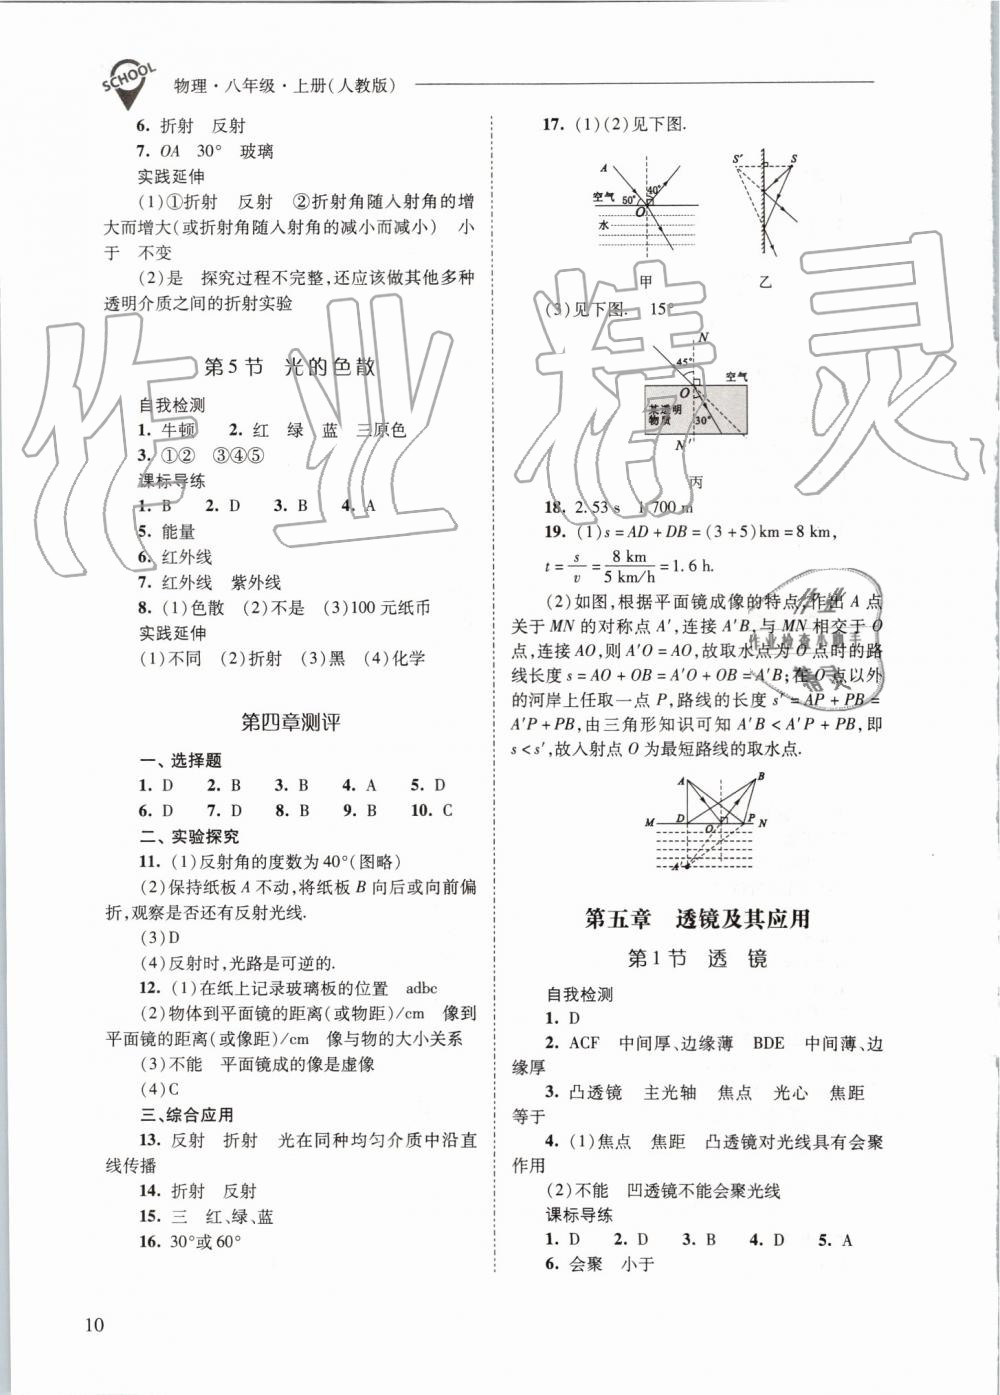 SCHOOL
物理·八年级·上册(人教版)
6. 折射 反射
7. OA 30° 玻璃
实践延伸
(1)①折射 反射 ②折射角随入射角的增
大而增大(或折射角随入射角的减小而减小) 小
于 不变
(2)是 探究过程不完整,还应该做其他多种
透明介质之间的折射实验
第5节 光的色散
自我检测
1. 牛顿 2. 红 绿 蓝 三原色
3. ①② ③④⑤
课标导练
1. B 2. D 3. B 4. A
5. 能量
6. 红外线
7. 红外线 紫外线
8. (1)色散 (2)不是 (3)100元纸币
实践延伸
(1)不同 (2)折射 (3)黑 (4)化学
第四章测评
一、选择题
1. D 2. B 3. B 4. A 5. D
6. D 7. D 8. B 9. B 10. C
二、实验探究
11. (1)反射角的度数为40°(图略)
(2)保持纸板A不动,将纸板B向后或向前偏
折,观察是否还有反射光线.
(3)D
(4)反射时,光路是可逆的.
12. (1)在纸上记录玻璃板的位置 adbc
(2)物体到平面镜的距离(或物距)/cm 像到
平面镜的距离(或像距)/cm 像与物的大小关系
(3)不能 平面镜成的像是虚像
(4)C
三、综合应用
13. 反射 折射 光在同种均匀介质中沿直
线传播
14. 折射 反射
15. 三 红、绿、蓝
16. 30°或60°
10
17. (1)(2)见下图.
A
空气 50° 40°
O
水
甲
S′ S
乙
(3)见下图. 15°
N
45°
空气
O
某透明
物质 30°
N′
丙
18. 2.53 s 1 700 m
19. (1)s=AD+DB=(3+5)km=8 km,
t=s/v=8 km/5 km/h=1.6 h.
(2)如图,根据平面镜成像的特点,作出A点
关于MN的对称点A′,连接A′B,与MN相交于O
点,连接AO,则A′O=AO,故取水点为O点时的路
线长度s=AO+OB=A′O+OB=A′B;在O点以外
的河岸上任取一点P,路线的长度s′=AP+PB=
A′P+PB,由三角形知识可知A′B<A′P+PB,即
s<s′,故入射点O为最短路线的取水点.
A B
M D O P N
A′
第五章 透镜及其应用
第1节 透 镜
自我检测
1. D
2. ACF 中间厚、边缘薄 BDE 中间薄、边
缘厚
3. 凸透镜 主光轴 焦点 光心 焦距
等于
4. (1)焦点 焦距 凸透镜对光线具有会聚
作用
(2)不能 凹透镜不能会聚光线
课标导练
1. D 2. D 3. B 4. D 5. A
6. 会聚 小于
作业精灵
作业
作业检查小助手
精灵